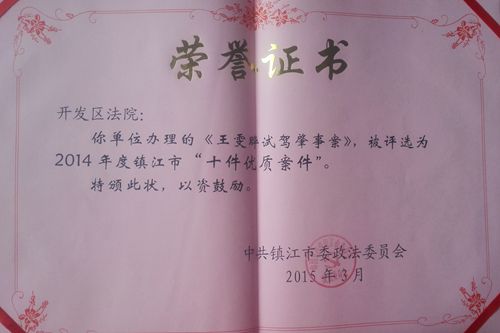 荣誉证书
开发区法院：
你单位办理的《王雯 试驾肇事案》，被评选为
2014年度镇江市“十件优质案件”。
特颁此状，以资鼓励。
中共镇江市委政法委员会
2015年3月